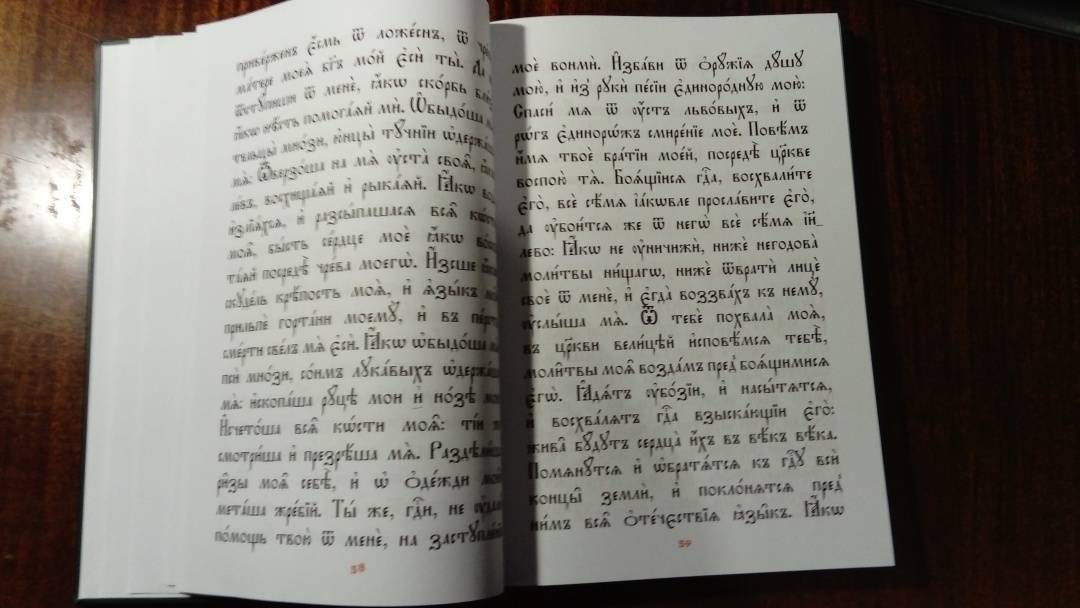 приве́рженъ є҆́смь ѿ ложе́снъ, ѿ
ма́тере моеѧ̀ бг҃ъ мо́й є҆сѝ ты̀. Да
ѿстꙋ́пиши ѿ менє̀, ꙗ҆́кѡ ско́рбь
ꙗ҆́кѡ нѣ́сть помога́ѧй мѝ. Ѡ҆быдо́ша
тельцы̀ мно́зи, ю҆нцы̀ тꙋ́чнїи
мѧ̀: Ѿверзо́ша на мѧ̀ ᲂу҆ста̀ своѧ̑,
ле́въ, восхища́ѧй и҆ рыка́ѧй. Ꙗ҆́кѡ
и҆злїѧ́хсѧ, и҆ разсы́пашасѧ всѧ̑
моѧ̑, бы́сть се́рдце моѐ ꙗ҆́кѡ
та́ѧй посредѣ̀ чре́ва моегѡ̀. И҆́зсше
скꙋде́ль крѣ́пость моѧ̀, и҆ ѧ҆зы́къ
прильпѐ горта́ни моемꙋ̀, и҆ въ
сме́рти све́лъ мѧ̀ є҆сѝ. Ꙗ҆́кѡ ѡ҆быдо́ша
псѝ мно́зи, со́нмъ лꙋка́выхъ
мѧ̀: и҆скопа́ша рꙋ́цѣ моѝ и҆ но́зѣ
И҆счето́ша всѧ̑ кѡ́сти моѧ̑: ті́и
смотри́ша и҆ презрѣ́ша мѧ̀.
ри̑зы моѧ̑ себѣ̀, и҆ ѡ҆ ѻ҆де́жди
мета́ша жре́бїй. Ты́ же, гдⷭ҇и, не
по́мощь твою̀ ѿ менє̀, на
58
моѐ вонмѝ. И҆зба́ви ѿ ѻ҆рꙋ́жїѧ дꙋ́шꙋ
мою̀, и҆ и҆з̾ рꙋкѝ пе́сїи є҆диноро́днꙋю мою̀:
Спаси́ мѧ ѿ ᲂу҆́стъ льво́выхъ, и҆ ѿ
рѡ́гъ є҆диноро́жъ смире́нїе моѐ. Повѣ́мъ
и҆́мѧ твоѐ бра́тїи мое́й, посредѣ̀ цр҃кве
воспою́ тѧ. Боѧ́щїисѧ гдⷭ҇а, восхвали́те
є҆го̀, всѐ сѣ́мѧ і҆а́кѡвле просла́вите є҆го̀,
да ᲂу҆бои́тсѧ же ѿ негѡ̀ всѐ сѣ́мѧ і҆и҃-
лево: Ꙗ҆́кѡ не ᲂу҆ничижѝ, нижѐ негодова̀
моли́твы ни́щагѡ, нижѐ ѿвратѝ лицѐ
своѐ ѿ менє̀, и҆ є҆гда̀ воззва́хъ къ немꙋ̀,
ᲂу҆слы́ша мѧ̀. Ѿ тебє̀ похвала̀ моѧ̀,
въ цр҃кви вели́цѣй и҆сповѣ́мсѧ тебѣ̀,
моли̑твы моѧ̑ возда́мъ пред̾ боѧ́щимисѧ
є҆гѡ̀. Ꙗ҆дѧ́тъ ᲂу҆бо́зїи, и҆ насы́тѧтсѧ,
и҆ восхва́лѧтъ гдⷭ҇а взыска́ющїи є҆го̀:
жива̑ бꙋ́дꙋтъ сердца̀ и҆́хъ въ вѣ́къ вѣ́ка.
Помѧнꙋ́тсѧ и҆ ѡ҆братѧ́тсѧ къ гдⷭ҇ꙋ всѝ
концы̀ землѝ, и҆ покло́нѧтсѧ пред̾
ни́мъ всѧ̑ ѻ҆те́чествїѧ ꙗ҆зы̑къ. Ꙗ҆́кѡ
59